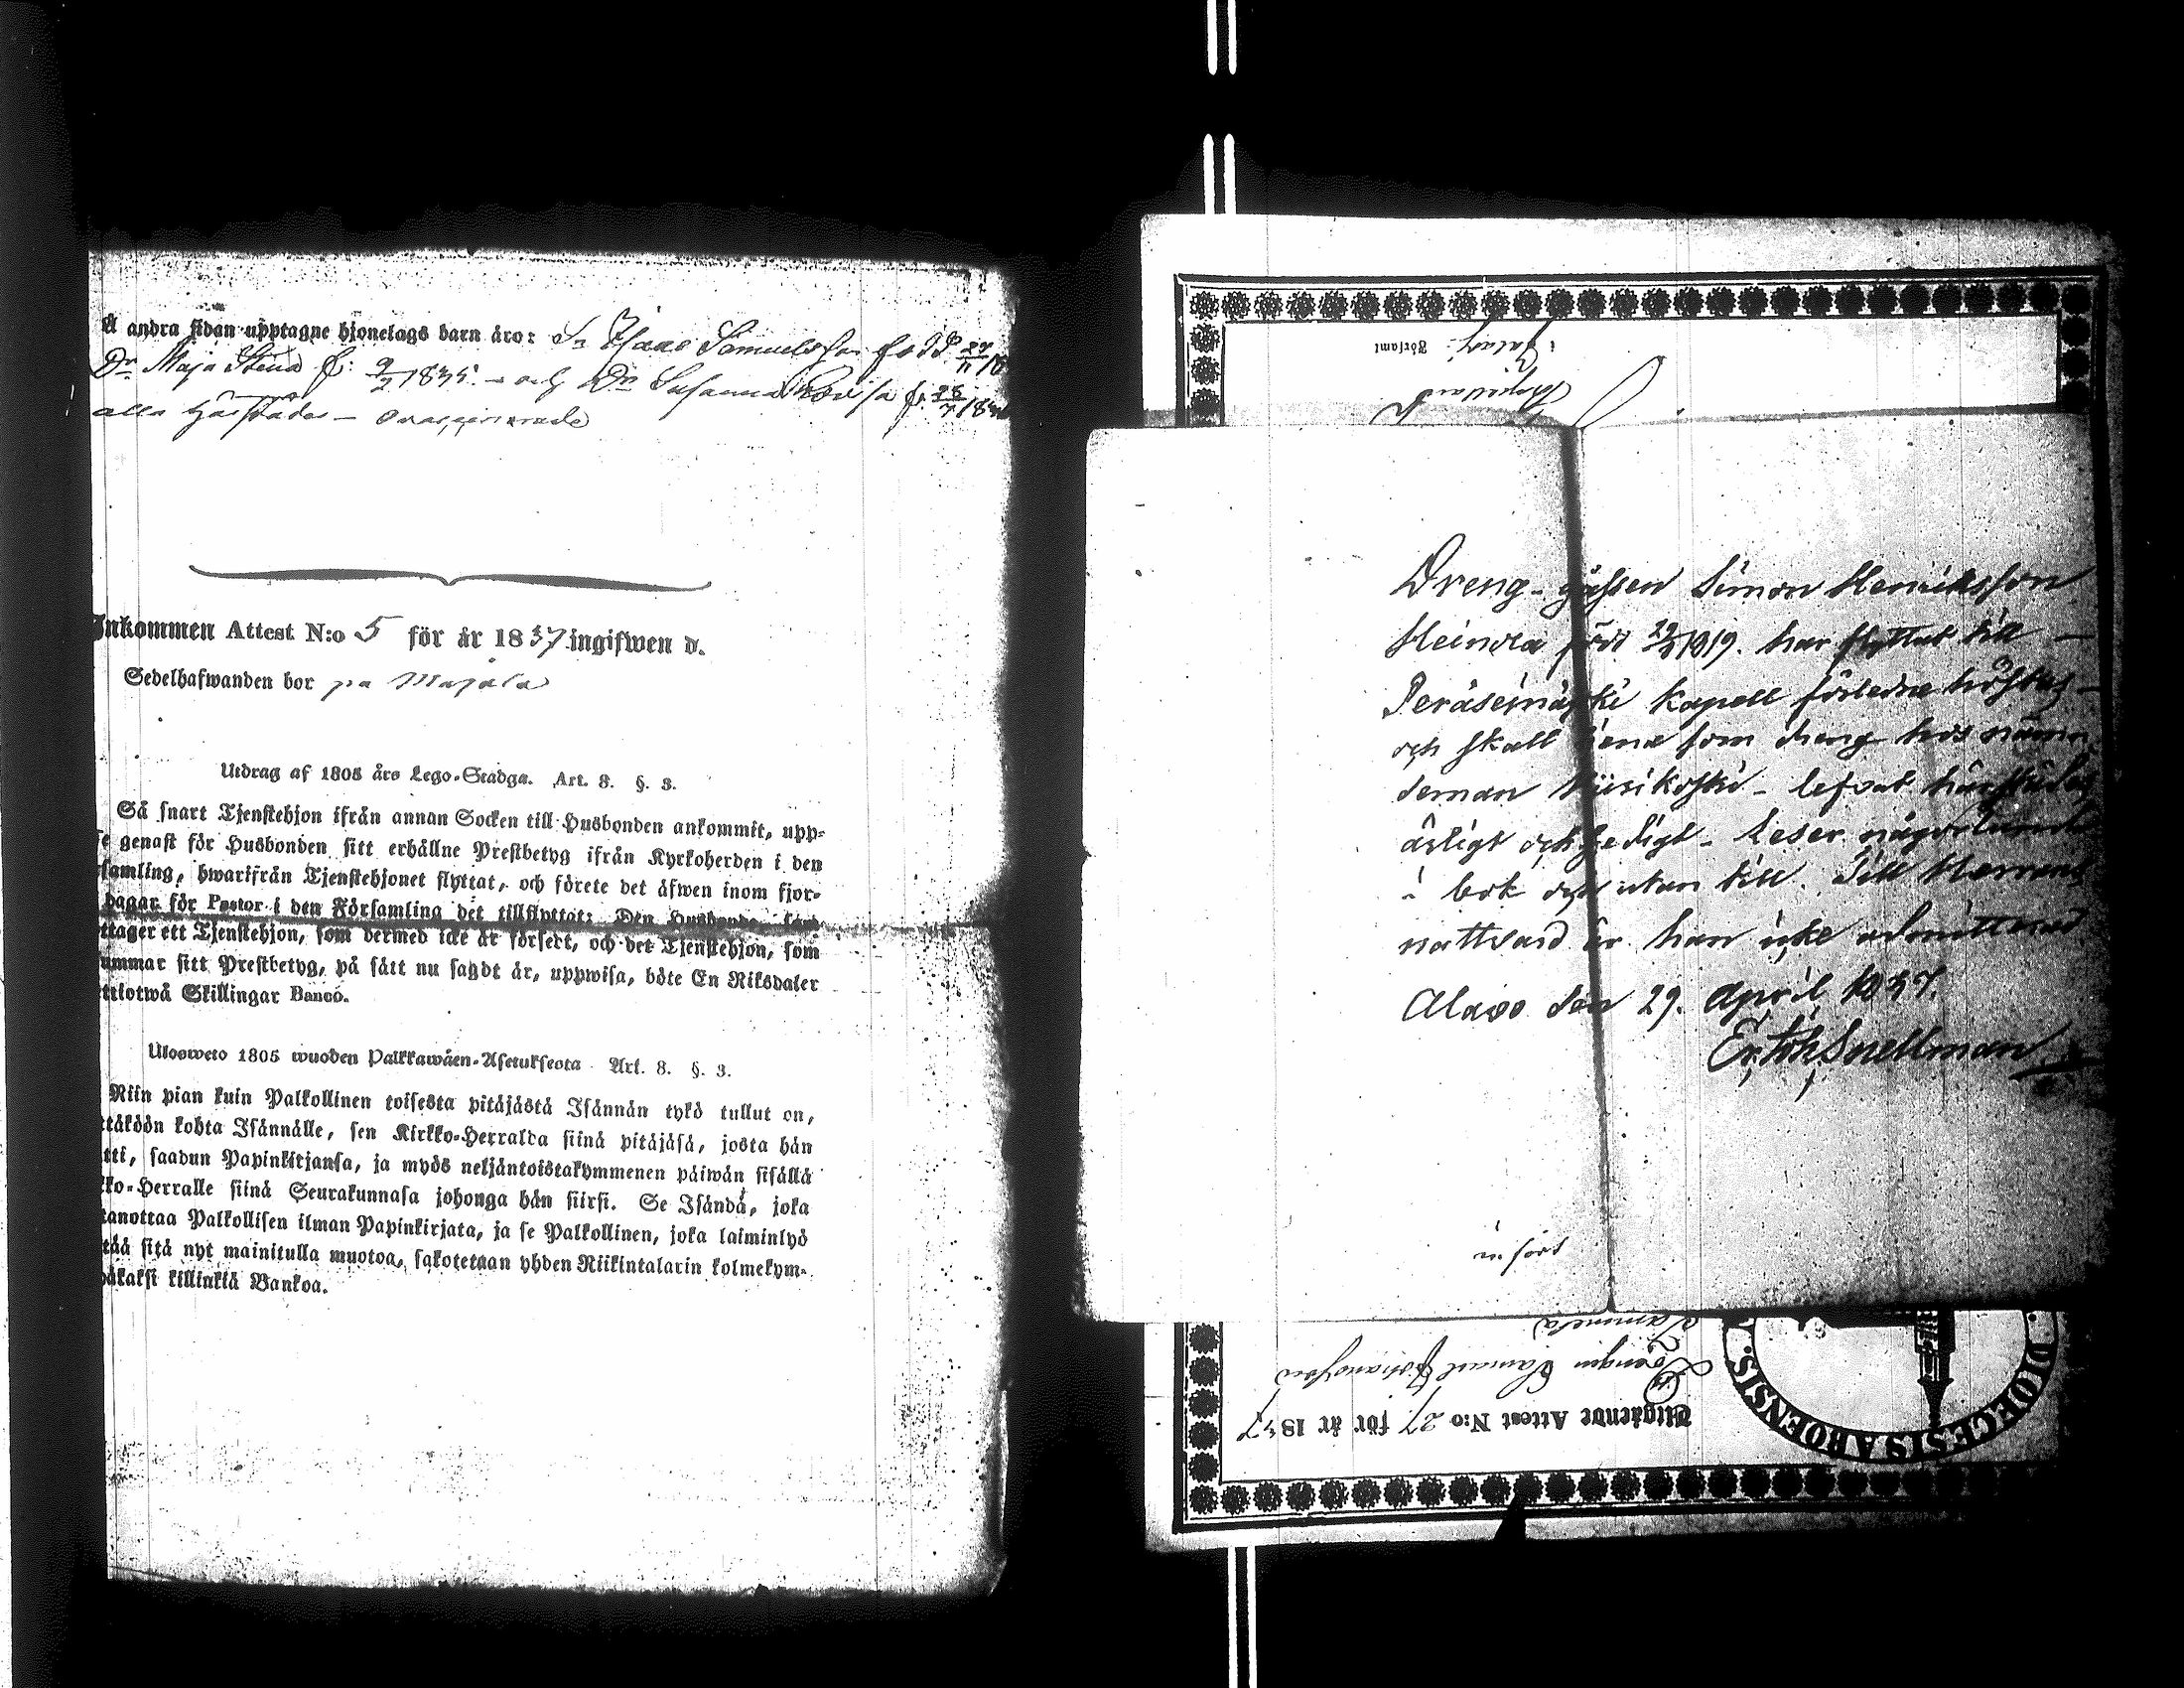 å andra sidan upptagne hjonelags barn äro: Sn Isaac Samuelsson född 27/11 18
Dr Maja Stina f: 9/2 1835. – och Dr Susanna Lovisa f. 28/7 18
alla härstädes –
Inkommen Attest N:o 5 för år 1837 ingifwen d.
Sedelhafwanden bor på Majala
Utdrag af 1805 års Lego-Stadga. Art. 8. §. 3.
Så snart Tjenstehjon ifrån annan Socken till Husbonden ankommit, upp=
te genast för Husbonden sitt erhållne Prestbetyg ifrån Kyrkoherden i den
samling, hwarifrån Tjenstehjonet flyttat, och förete det äfwen inom fjor=
dagar för Pastor i den Församling det tillflyttat: Den Husbonde, som
ttager ett Tjenstehjon, som dermed icke är försedt, och det Tjenstehjon, som
ummar sitt Prestbetyg, på sätt nu sagdt är, uppwisa, böte En Riksdaler
ttiotwå Skillingar Banco.
Ulosweto 1805 wuoden Palkkawäen-Asetuksesta Art. 8. §. 3.
Niin pian kuin Palkollinen toisesta pitäjästä Isännän tykö tullut on,
ttäköön kohta Isännälle, sen Kirkko-Herralda siinä pitäjäsä, josta hän
tti, saadun Papinkirjansa, ja myös neljäntoistakymmenen päiwän sisällä
kko-Herralle siinä Seurakunnasa johonga hän siirsi. Se Isändä, joka
tanottaa Palkollisen ilman Papinkirjata, ja se Palkollinen, joka laiminlyö
tää sitä nyt mainitulla muotoa, sakotetaan yhden Riikintalarin kolmekym=
äkaksi killinkiä Bankoa.
i Församt
Dreng-gåssen Simon Henriksson
Heinola född 29/3 1819. har flyttat till –
Peräseinäjoki Kapell förledne höstas –
och skall tjena som dreng hos nämn
deman Kiikoski – lefvat härstädes
ärligt och ledigt – Läser någorlunda
i bok och utan till. Till Herrans
nattvard är han icke admitterad
Alavo den 29. April 1837.
Er. Joh Snellman
införd
Tammela
Drengen Samuel Johansson
Utgående Attest N:o 27 för år 1837
DIOECESIS ABOENSIS